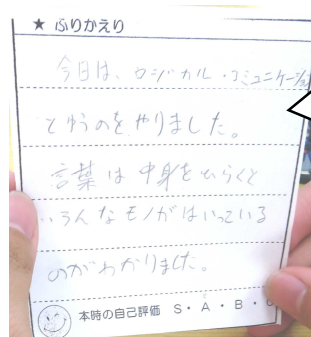 ★ ふりかえり
今日は、ロジカル・コミュニケーション
とゆうのをやりました。
言葉は中身をひらくと
いろんなモノがはいっている
のがわかりました。
本時の自己評価 S・A・B・C